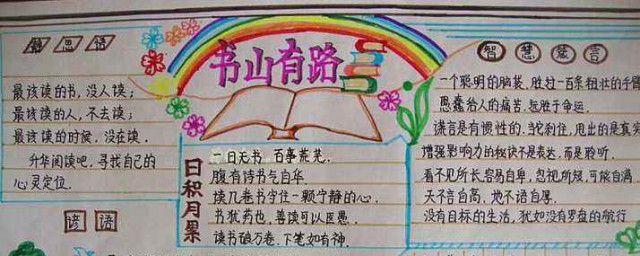 静思语
最该读的书，没人读；
最该读的人，不去读；
最该读的时候，没在读．
升华阅读吧，寻找自己的
心灵定位．
谚语
书山有路
日积月累
一日无书 百事荒芜．
腹有诗书气自华．
读几卷书守住一颗宁静的心．
书犹药也，善读可以医愚．
读书破万卷，下笔如有神．
智慧箴言
一个聪明的脑袋，胜过一百条粗壮的手臂
愚蠢给人的痛苦，甚于命运．
谎言是有惯性的，当它刹住，甩出的是真实
增强影响力的秘诀不是表达，而是聆听．
看不见所长，容易自卑，忽视所短，可能自满．
天不言自高，地不语自厚．
没有目标的生活，犹如没有罗盘的航行